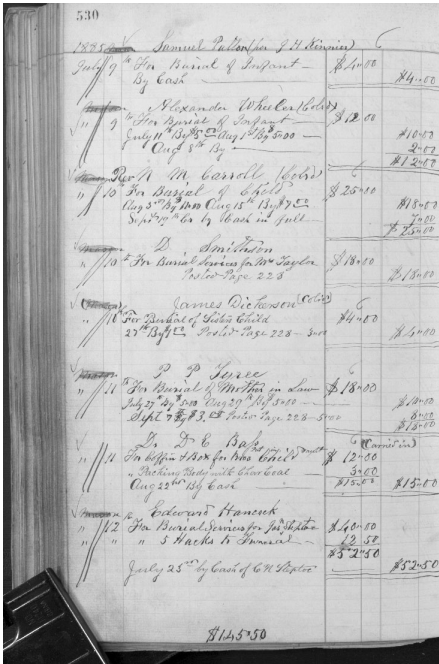 530
1885 Samuel Pulton (per J H Kinnier)
July 9 For Burial of Infant $4.00
By Cash $4.00
Alexander Wheeler (Col'd)
" 9th For Burial of Infant $12.00
July 11th By $5.00 Aug 1st By $5.00 $10.00
Aug 8th By 2.00
$12.00
Rev N M Carroll (Col'd)
" 10th For Burial of Child $25.00
Aug 15th By $7.00 $18.00
Sept by Cash in full 7.00
$25.00
D Smithson
" 10th For Burial Services for Mrs Taylor $18.00
Posted Page 228 $18.00
James Dickerson (Col'd)
" 10th For Burial of Sisters Child $4.00
27th By Posted Page 228 - 3.00 $4.00
P P
" 11th For Burial of Mother in Law $18.00
July 27th By $5.00 Aug 29th By $5.00 $10.00
Sept 7th By $3.00 Posted Page 228 - 5.00 8.00
$18.00
Dr D E Bass (Carried in)
" 11 For Coffin & Box for Child $12.00
" Packing Body with Char Coal 3.00
Aug 22nd By Cash $15.00 $15.00
Edward Hancock
" 12 For Burial Services for Jas Steptoe $40.00
" " 5 Hacks to Funeral 12.50
$52.50
July 25th by Cash of C N Steptoe $52.50
$145.50